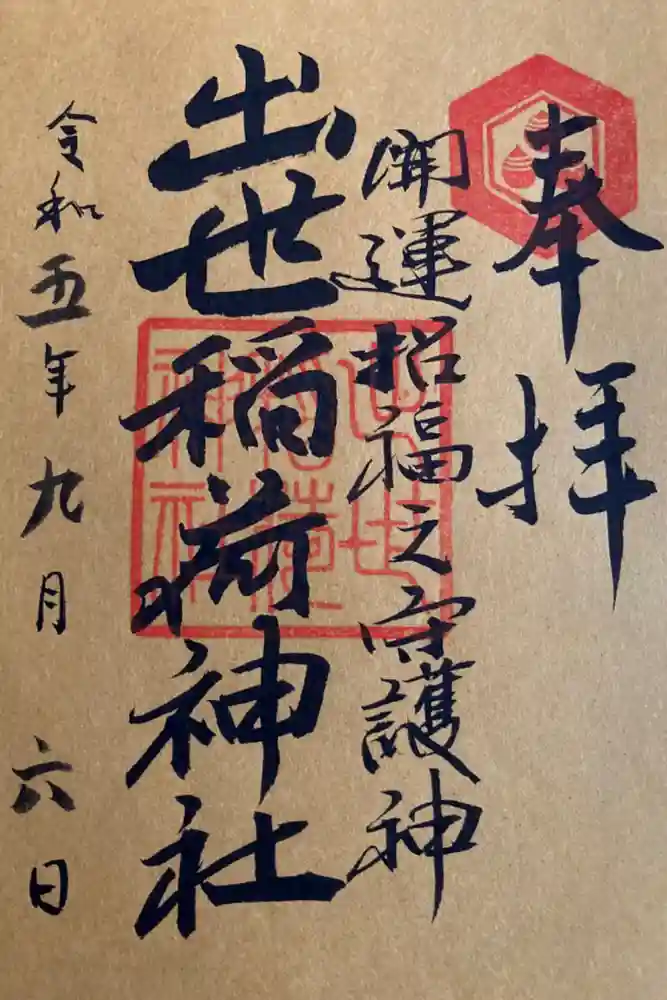 奉拝
開運招福之守護神
出世稲荷神社
出世稲荷神社
令和五年九月六日